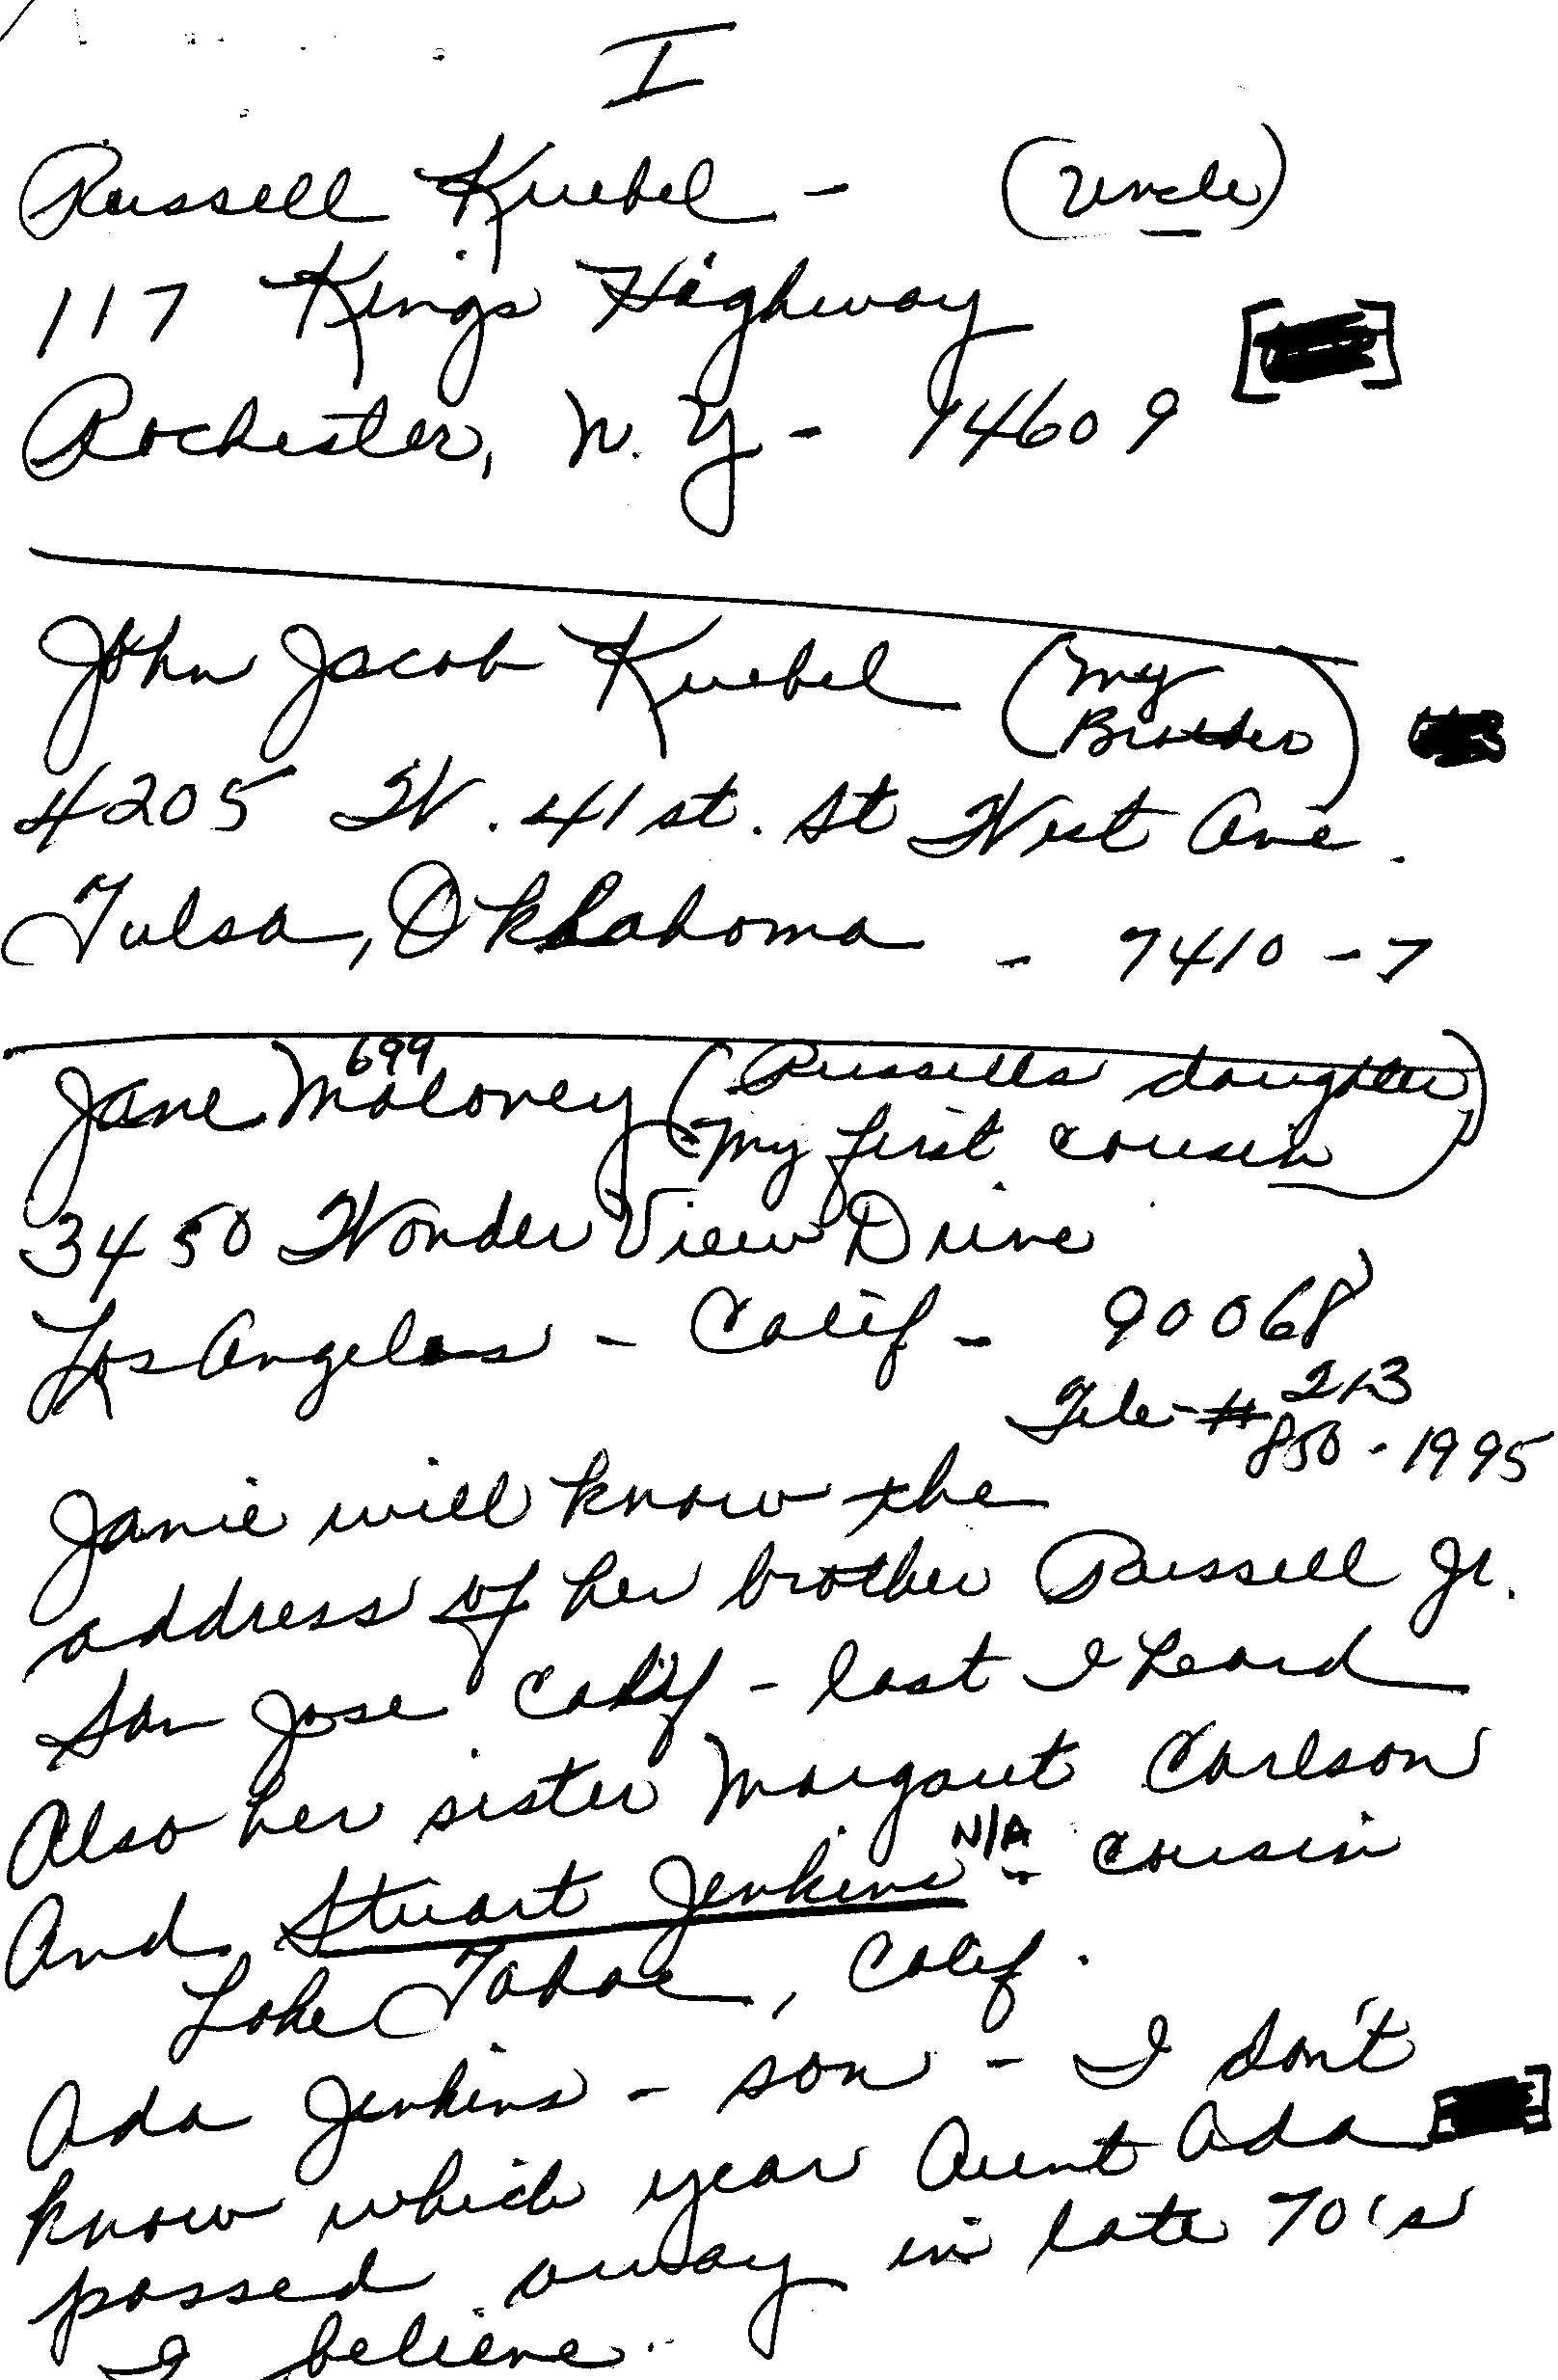 I
Russell Kuebel - (Uncle)
117 Kings Highway
Rochester, N.Y - 14609
John Jacob Kuebel (My
Brother)
4205 W. 41st. St West Ave.
Tulsa, Oklahoma - 7410-7
699
Jane Maloney (Russells daughter)
My first cousin)
3450 Wonder View Drive
Los Angeles - Calif - 90068
Tele-# 213
850-1995
Janie will know the
address of her brother Russell Jr.
San Jose Calif - last I heard
Also her sister Margaret Carlson
N/A
And Stuart Jenkins - cousin
Lake Tahoe, Calif.
Ada Jenkins - son - I don't
know which year Aunt Ada
passed away in late 70's
I believe.